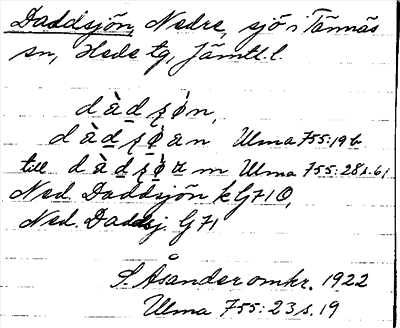 Daddsjön, Nedre, sjö i Tännäs
sn, Hede tg, Jämtl. l.
dàdʂön,
dàdʂöan Ulma 755:19 b
till dàdʂöam Ulma 755:28 s. 61
Ned. Daddsjön k G71 O,
Ned. Daddsj. G71
S. Åsander omkr. 1922
Ulma 755:23 s. 19